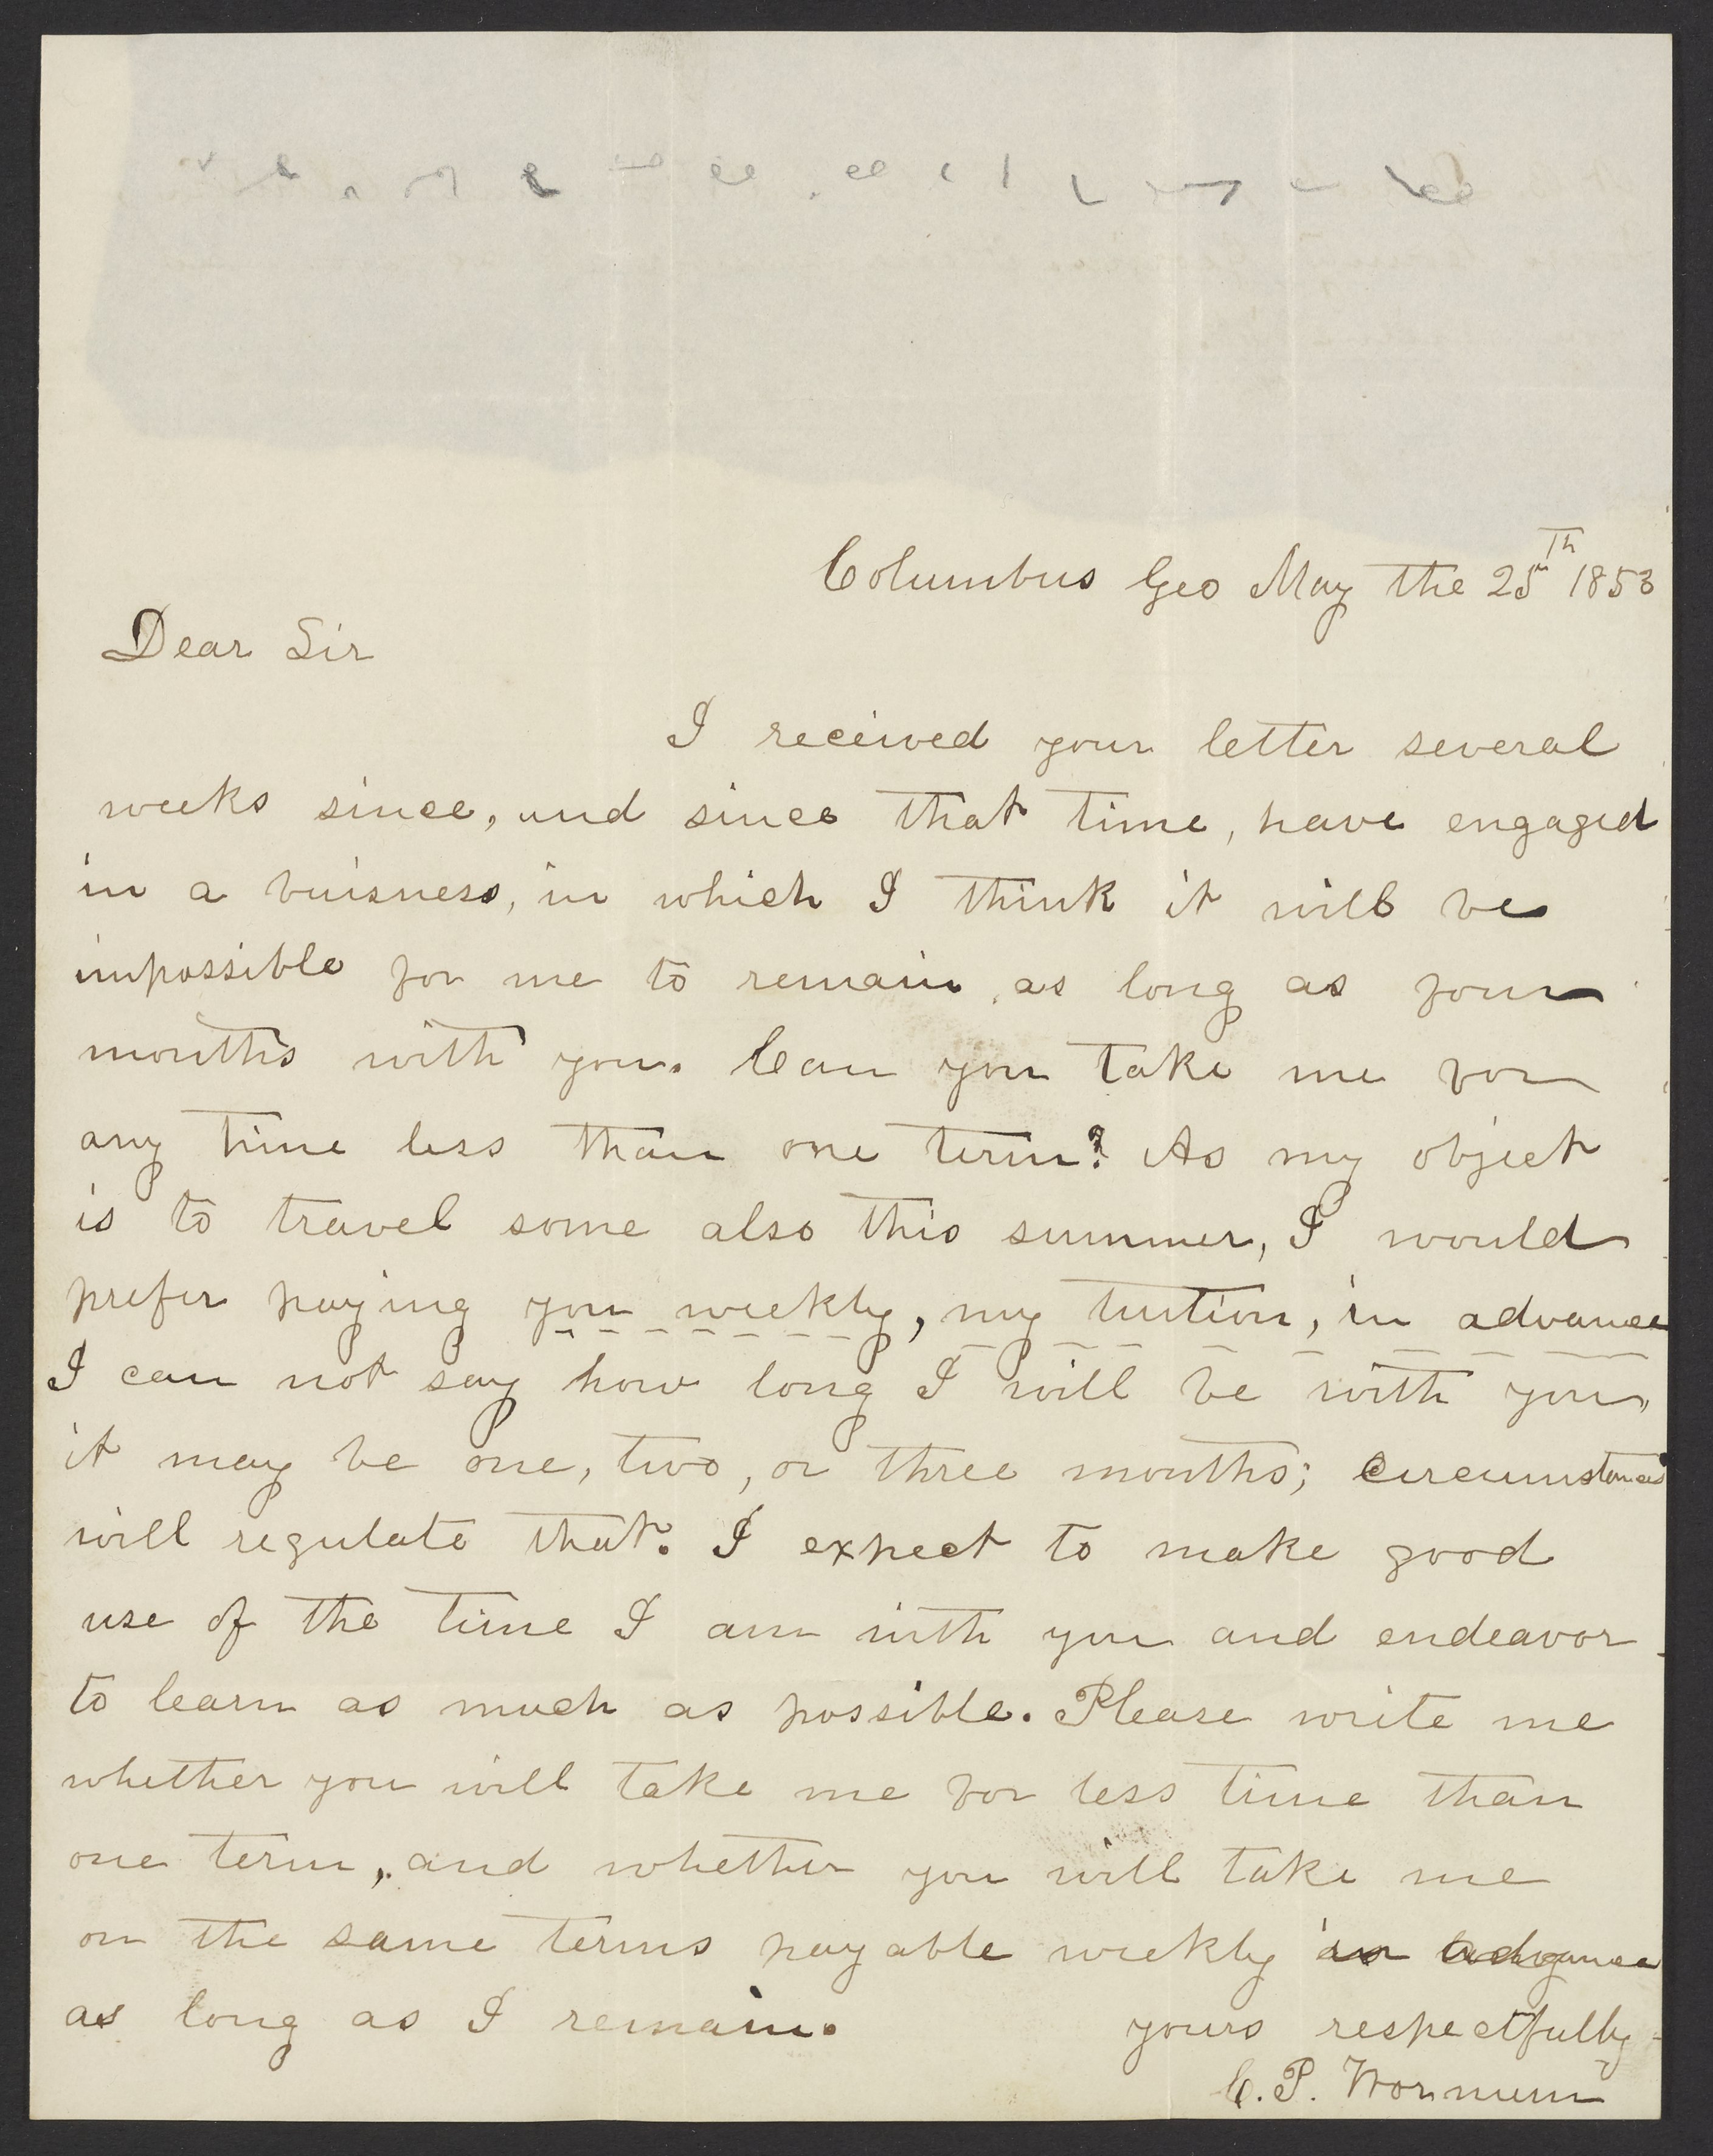 Columbus Geo May the 25th 1853
Dear Sir
I received your letter several
weeks since, and since that time, have engaged
in a buisness, in which I think it will be
impossible for me to remain as long as four
months with you. Can you take me for
any time less than one term? As my object
is to travel some also this summer, I would
prefer paying you weekly, my tution, in advance
I can not say how long I will be with you,
it may be one, two, or three months; circumstances
will regulate that. I expect to make good
use of the time I am with you and endeavor
to learn as much as possible. Please write me
whether you will take me for less time than
one term, and whether you will take me
on the same terms payable weekly in advance
as long as I remain.
yours respectfully
C. P.